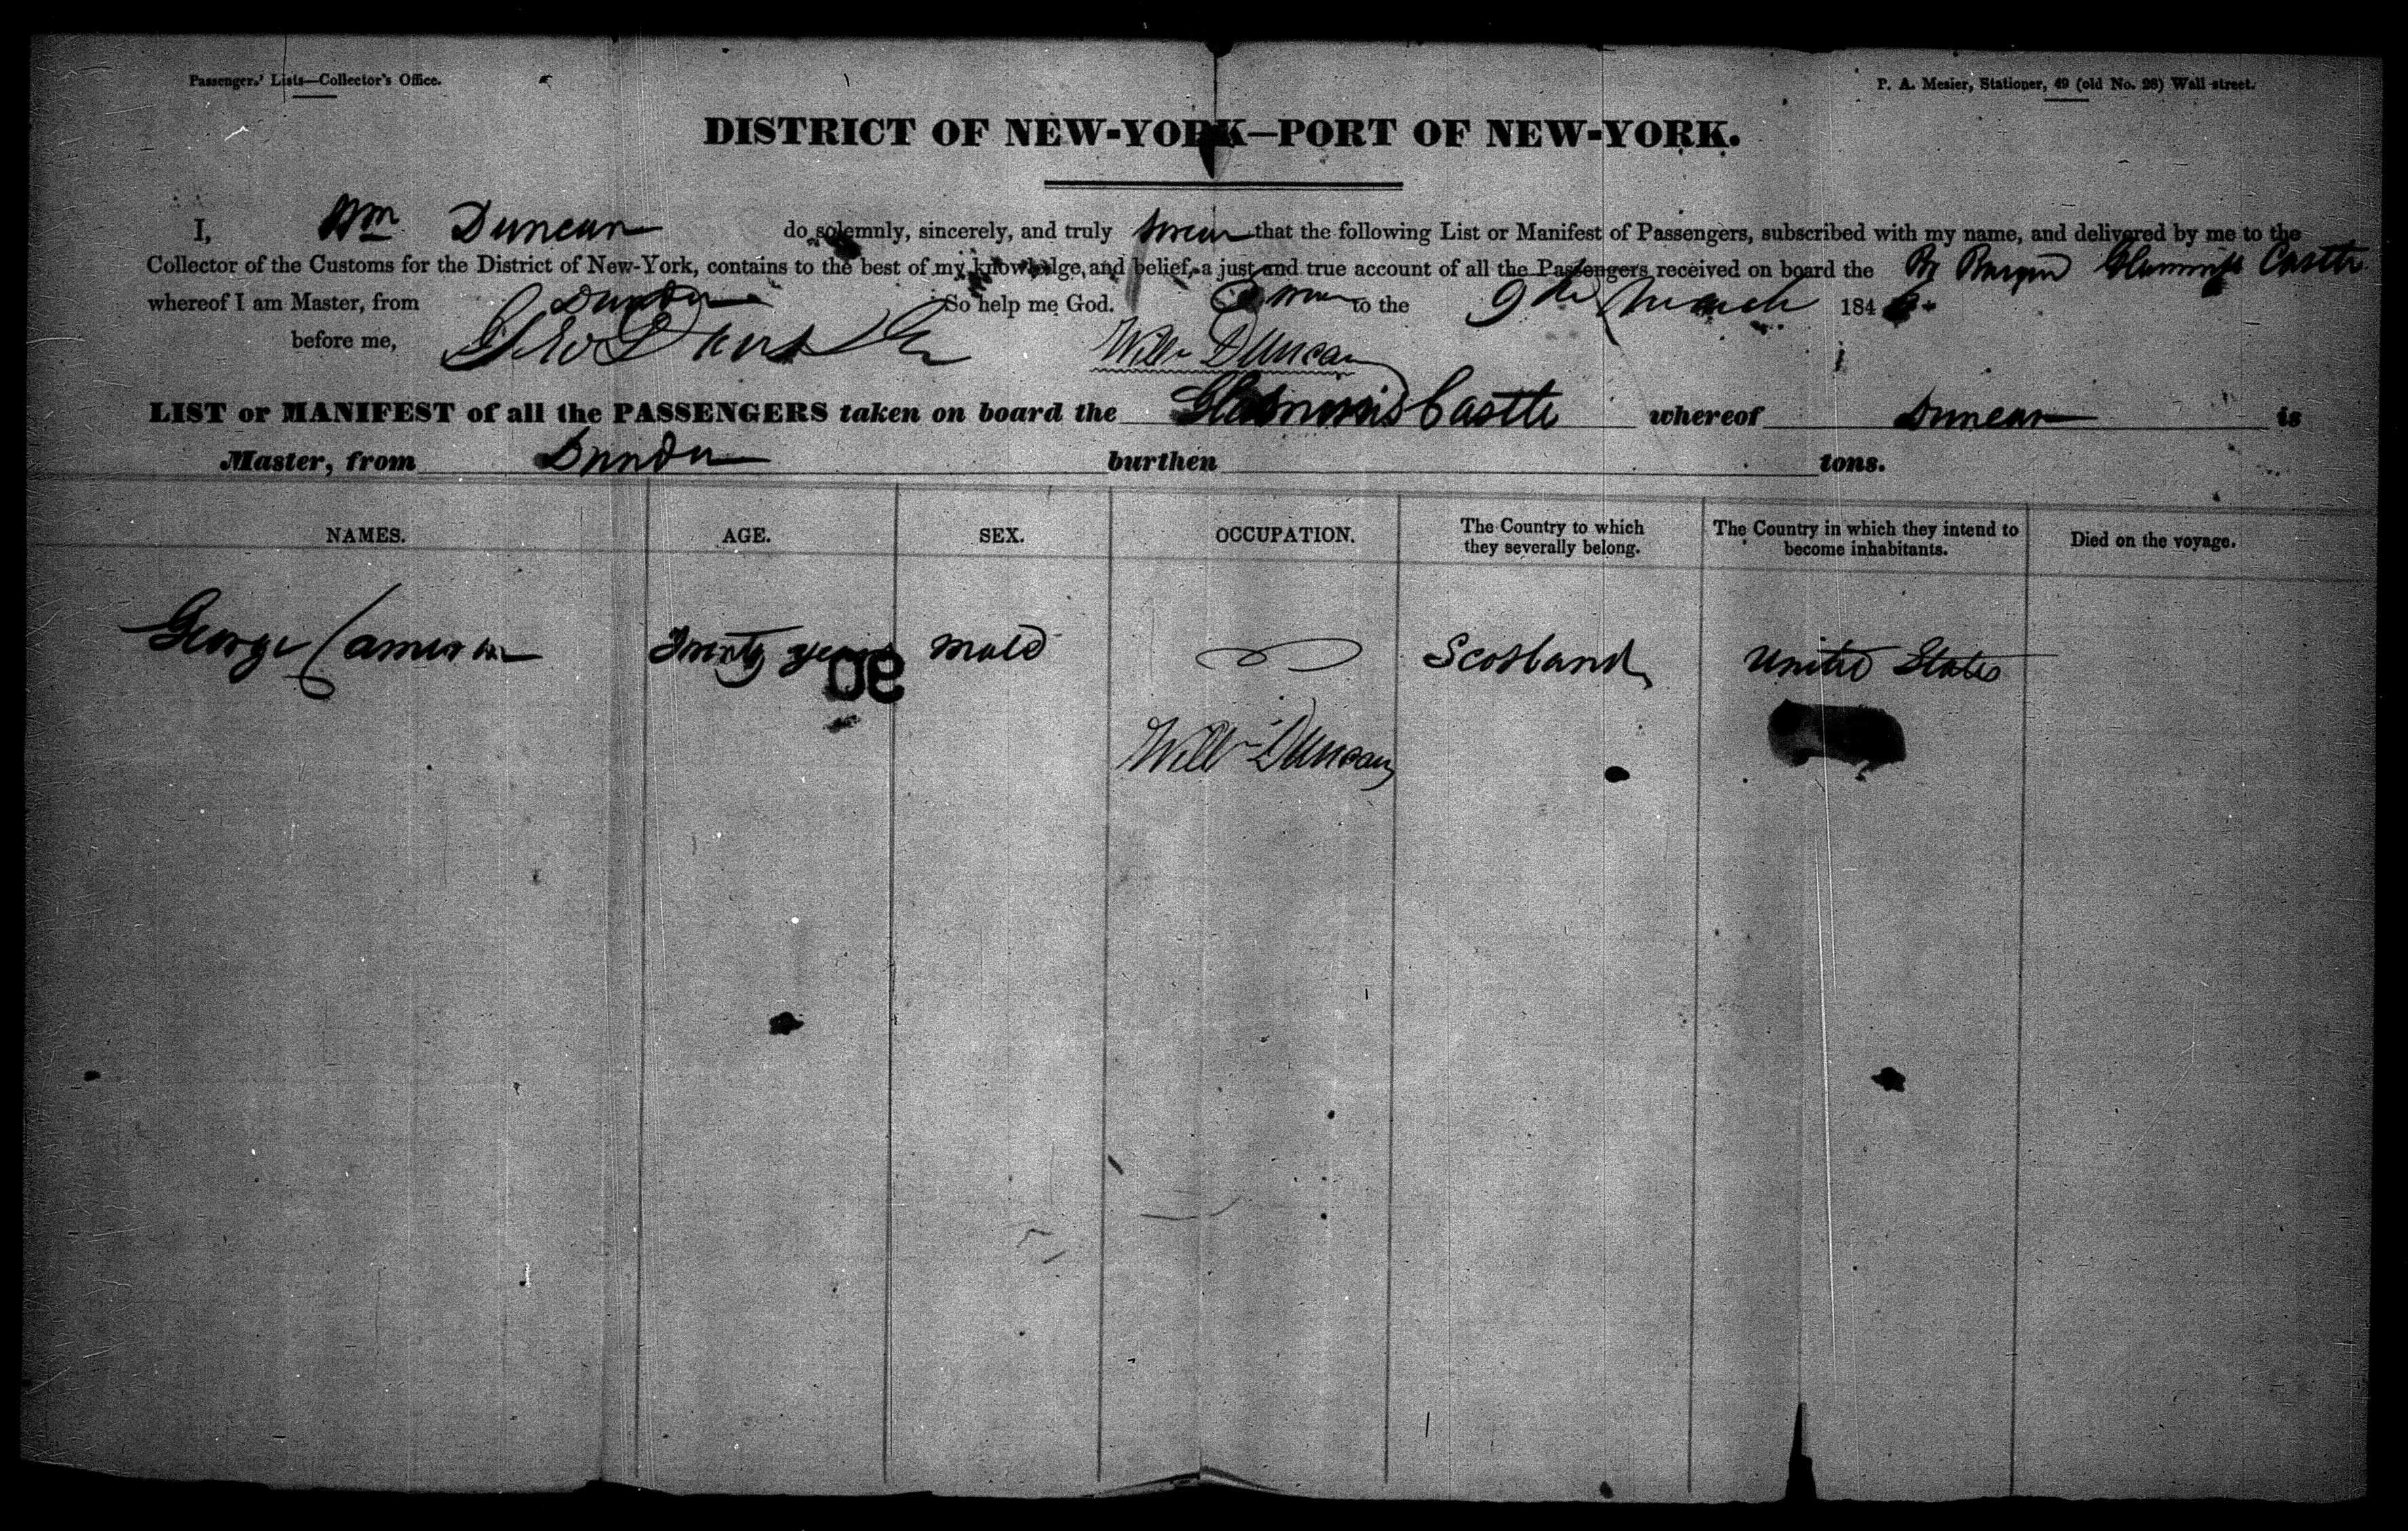 Passengers' Lists—Collector's Office.
P. A. Mesier, Stationer, 49 (old No. 28) Wall-street.
DISTRICT OF NEW-YORK—PORT OF NEW-YORK.
I, Wm Duncan do solemnly, sincerely, and truly swear that the following List or Manifest of Passengers, subscribed with my name, and delivered by me to the
Collector of the Customs for the District of New-York, contains to the best of my knowledge, and belief, a just and true account of all the Passengers received on board the Br Castle
whereof I am Master, from Dundee So help me God. Sworn to the 9th March 184
before me, Willm Duncan
LIST or MANIFEST of all the PASSENGERS taken on board the Glammis Castle whereof Duncan is
Master, from Dundee burthen tons.
NAMES. AGE. SEX. OCCUPATION. The Country to which they severally belong. The Country in which they intend to become inhabitants. Died on the voyage.
George Cameron Twenty years male Scotland United States
30
Willm Duncan